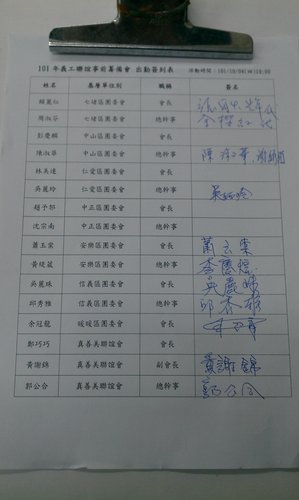 101年義工聯誼事前籌備會 出勤簽到表 活動時間：101/10/04(四)19:00
姓名 基層單位別 職稱 簽名
賴麗紅 七堵區團委會 會長
簡淑芬 七堵區團委會 總幹事
彭慶麟 中山區團委會 會長
陳淑華 中山區團委會 總幹事 陳淑華
林美達 仁愛區團委會 會長
吳麗玲 仁愛區團委會 總幹事 吳麗玲
趙予郁 中正區團委會 會長
沈宗南 中正區團委會 總幹事
蕭玉棠 安樂區團委會 會長 蕭玉棠
黃琁葳 安樂區團委會 總幹事
吳麗珠 信義區團委會 會長
邱秀雅 信義區團委會 總幹事 邱秀雅
余冠龍 暖暖區團委會 會長
鄭巧巧 真善美聯誼會 會長
黃謝錦 真善美聯誼會 副會長 黃謝錦
郭公合 真善美聯誼會 總幹事 郭公合